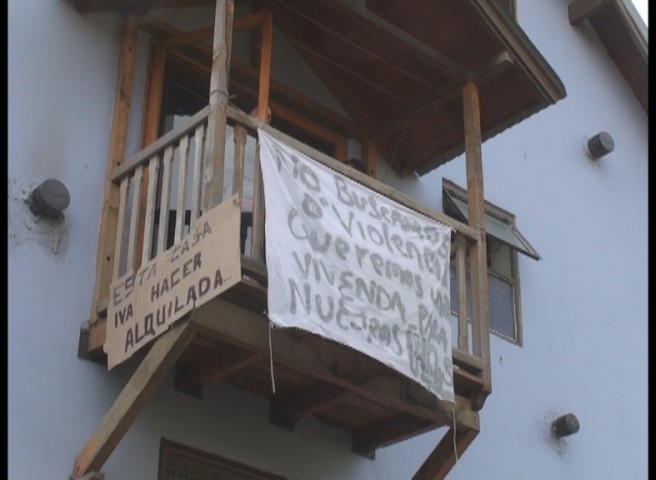 ESTA CASA
IVA HACER
ALQUILADA..
NO BUSCAMOS
O Violencia
Queremos
VIVENDA PARA
NUESTROS